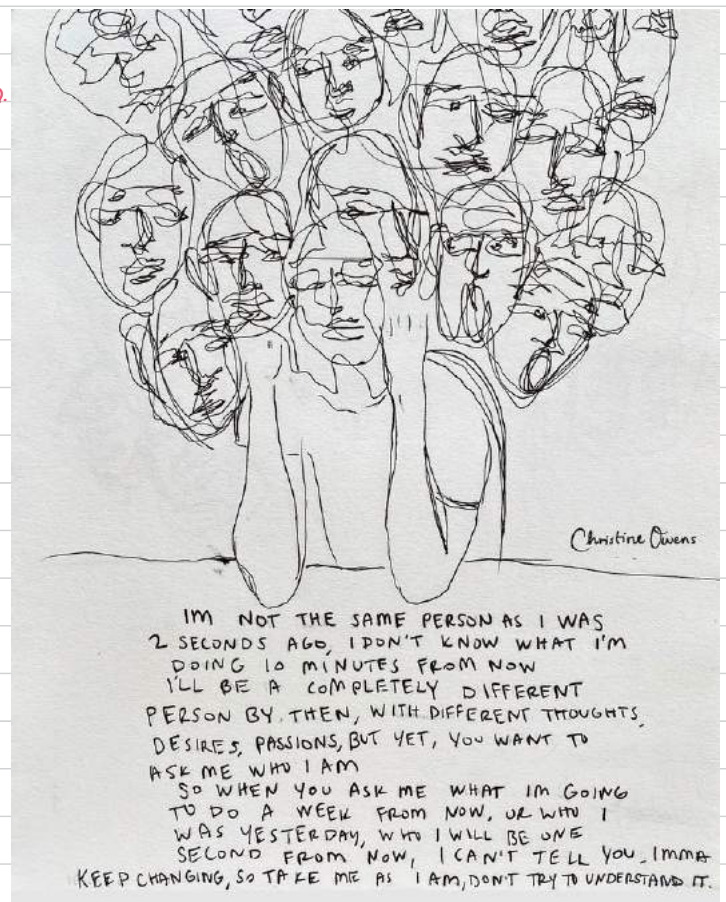 Christine Owens
IM NOT THE SAME PERSON AS I WAS
2 SECONDS AGO, I DON'T KNOW WHAT I'M
DOING 10 MINUTES FROM NOW
I'LL BE A COMPLETELY DIFFERENT
PERSON BY THEN, WITH DIFFERENT THOUGHTS,
DESIRES, PASSIONS, BUT YET, YOU WANT TO
ASK ME WHO I AM
SO WHEN YOU ASK ME WHAT IM GOING
TO DO A WEEK FROM NOW, OR WHO I
WAS YESTERDAY, WHO I WILL BE ONE
SECOND FROM NOW, I CAN'T TELL YOU. IMMA
KEEP CHANGING, SO TAKE ME AS I AM, DON'T TRY TO UNDERSTAND IT.